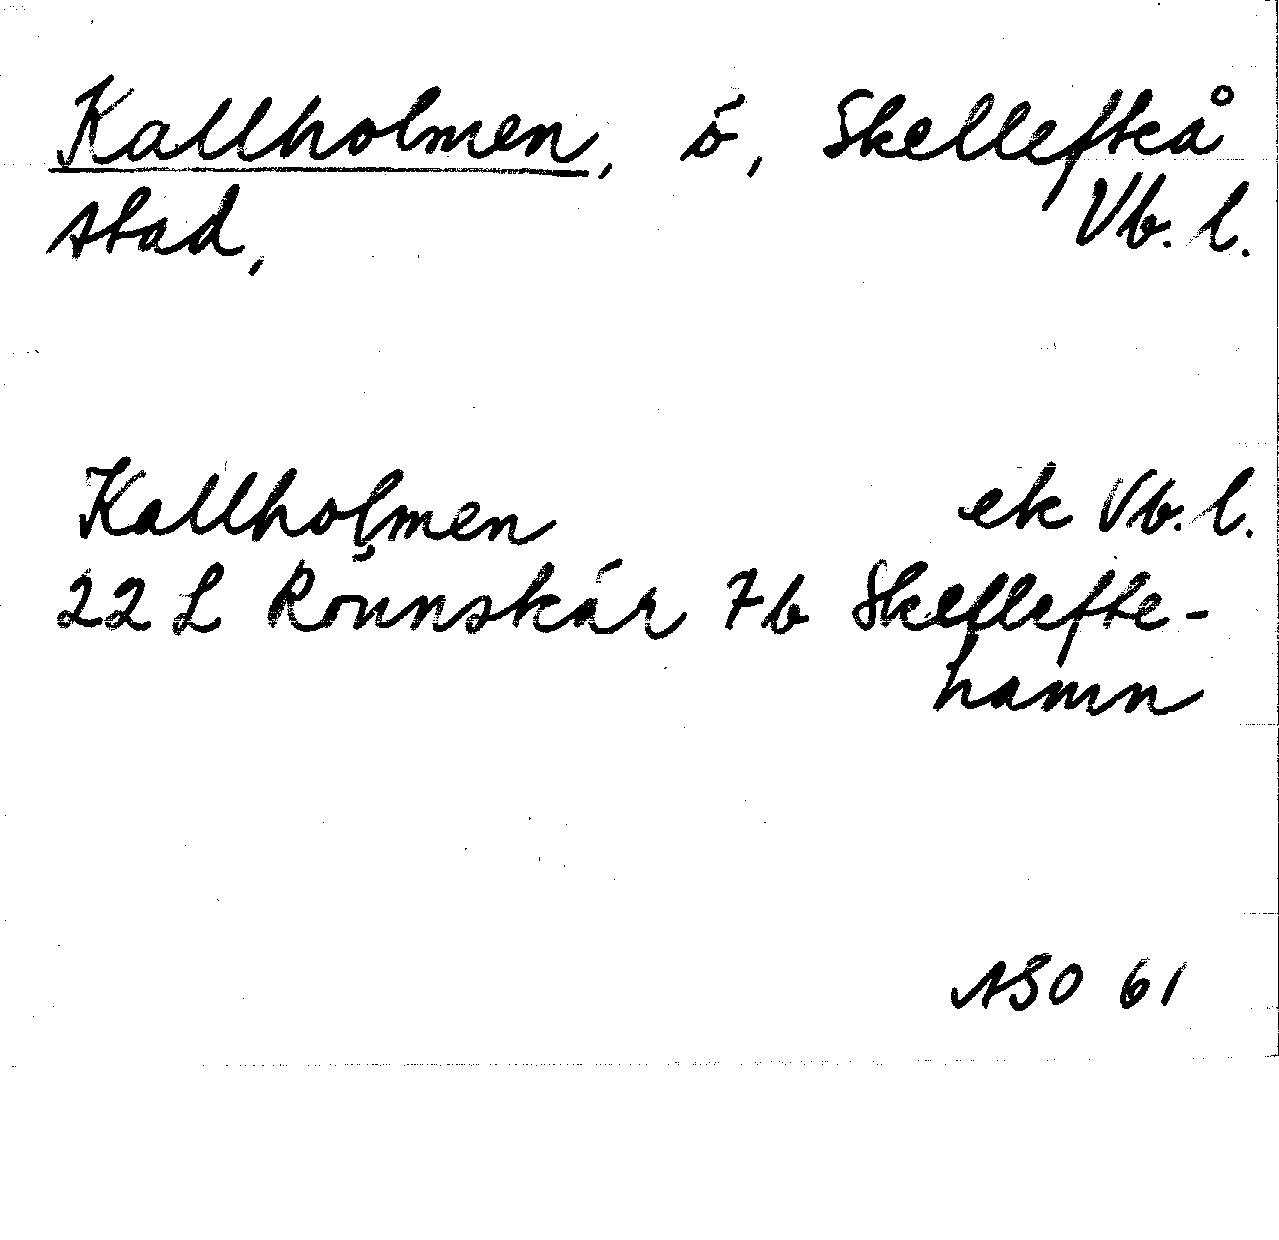 Kallholmen, ö, Skellefteå
stad, Vb. l.
Kallholmen ek Vb. l.
22 L Rönnskär 7b Skellefte-
hamn
ASO 61